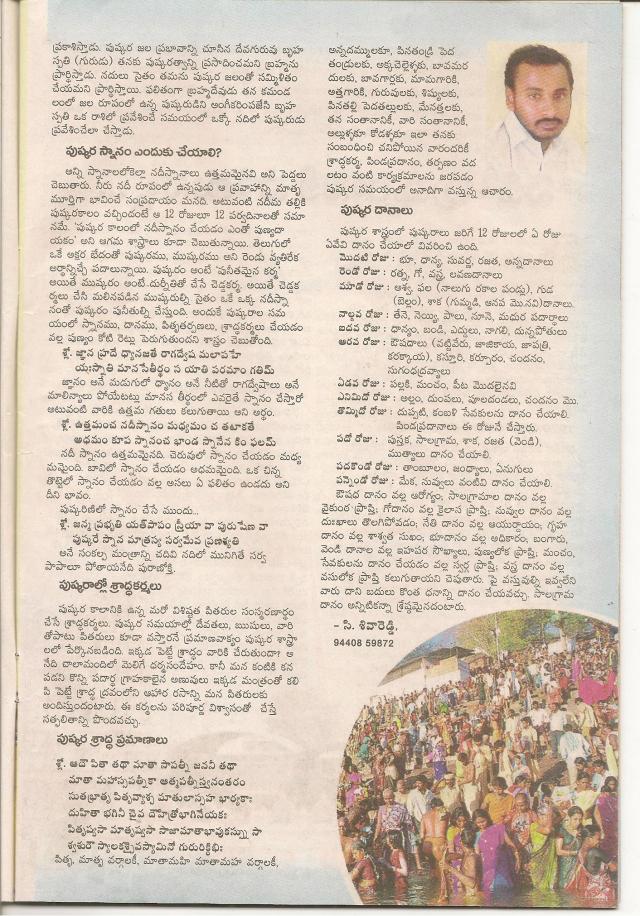 ప్రకాశిస్తాడు. పుష్కర జల ప్రభావాన్ని చూసిన దేవగురువు బృహ
స్పతి (గురుడు) తనకు పుష్కరత్వాన్ని ప్రసాదించమని బ్రహ్మను
ప్రార్థిస్తాడు. నదులు సైతం తమను పుష్కర జలంతో సమ్మిళితం
చేయమని ప్రార్థిస్తాయి. ఫలితంగా బ్రహ్మదేవుడు తన కమండ
లంలో జల రూపంలో ఉన్న పుష్కరుడిని అంగీకరింపజేసి బృహ
స్పతి ఒక రాశిలో ప్రవేశించే సమయంలో ఒక్కో నదిలో పుష్కరుడు
ప్రవేశించేలా చేస్తాడు.
పుష్కర స్నానం ఎందుకు చేయాలి?
అన్ని స్నానాలలోకెల్లా నదీస్నానాలు ఉత్తమమైనవి అని పెద్దలు
చెబుతారు. నీరు నదీ రూపంలో ఉన్నపుడు ఆ ప్రవాహాన్ని మాతృ
మూర్తిగా భావించే సంప్రదాయం మనది. అటువంటి నదీమ తల్లికి
పుష్కరకాలం వచ్చిందంటే ఆ 12 రోజులూ 12 పర్వదినాలతో సమా
నమే. 'పుష్కర కాలంలో నదీస్నానం చేయడం ఎంతో పుణ్యదా
యకం' అని ఆగమ శాస్త్రాలు కూడా చెబుతున్నాయి. తెలుగులో
ఒకే అక్షర భేదంతో పుష్కరము, ముష్కరము అని రెండు వ్యతిరేక
అర్థాన్నిచ్చే పదాలున్నాయి. పుష్కరం అంటే 'పునీతమైన కర్మ'
అయితే ముష్కరం అంటే..దుర్నీతితో చేసే చెడ్డకర్మ. అయితే చెడ్డక
ర్మలు చేసి మలినపడిన ముష్కరుల్ని సైతం ఒకే ఒక్క నదీస్నా
నంతో పుష్కరం పునీతుల్ని చేస్తుంది. అందుకే పుష్కరాల సమ
యంలో స్నానము, దానము, పితృతర్పణలు, శ్రాద్ధకర్మలు చేయడం
వల్ల పుణ్యం కోటి రెట్లు పెరుగుతుందని శాస్త్రం చెబుతోంది.
శ్లో. జ్ఞాన హ్రదే ధ్యానజతే రాగద్వేష మలాపహే
యఃస్నాతి మానసేతీర్థం స యాతి పరమాం గతిమ్
జ్ఞానం అనే మడుగులో ధ్యానం అనే నీటితో రాగద్వేషాలు అనే
మాలిన్యాలు పోయేటట్లు మానస తీర్థంలో ఎవరైతే స్నానం చేస్తారో
అటువంటి వారికి ఉత్తమ గతులు కలుగుతాయి అని అర్థం.
శ్లో. ఉత్తమంచ నదీస్నానం మధ్యమం చ తటాకతే
అధమం కూప స్నానంచ భాండ స్నానేన కిం ఫలమ్
నదీ స్నానం ఉత్తమమైనది. చెరువులో స్నానం చేయడం మధ్య
మమైంది. బావిలో స్నానం చేయడం అధమమైంది. ఒక చిన్న
తొట్టెలో స్నానం చేయడం వల్ల అసలు ఏ ఫలితం ఉండదు అని
దీని భావం.
పుష్కరిణిలో స్నానం చేసే ముందు...
శ్లో. జన్మ ప్రభృతి యత్పాపం స్త్రియా వా పురుషేణ వా
పుష్కరే స్నాన మాత్రస్య సర్వమేవ ప్రణశ్యతి
అనే సంకల్ప మంత్రాన్ని చదివి నదిలో మునిగితే సర్వ
పాపాలూ పోతాయనేది పురాణోక్తి.
పుష్కరాల్లో శ్రాద్ధకర్మలు
పుష్కర కాలానికి ఉన్న మరో విశిష్టత పితరుల సంస్మరణార్థం
చేసే శ్రాద్ధకర్మలు. పుష్కర సమయాల్లో దేవతలు, ఋషులు, వారి
తోపాటు పితరులు కూడా వస్తారనే ప్రమాణవాక్యం పుష్కర శాస్త్రా
లలో పేర్కొనబడింది. ఇక్కడ పెట్టే శ్రాద్ధం వారికి చేరుతుందా? అ
నేది చాలామందిలో మెలిగే ధర్మసందేహం. కానీ మన కంటికి కన
పడని కొన్ని పదార్థ గ్రాహకాలైన అణువులు ఇక్కడ మంత్రంతో కలి
పి పెట్టే శ్రాద్ధ ద్రవంలోని ఆహార రసాన్ని మన పితరులకు
అందిస్తుందంటారు. ఈ కర్మలను పరిపూర్ణ విశ్వాసంతో చేస్తే
సత్ఫలితాన్ని పొందవచ్చు.
పుష్కర శ్రాద్ధ ప్రమాణాలు
శ్లో. ఆదౌ పితా తథా మాతా సాపత్నీ జననీ తథా
మాతా మహాస్సపత్నీకా ఆత్మపత్నీస్త్వనంతరం
సుతభ్రాతృ పితృవ్యాశ్చ మాతులాస్సహ భార్యకాః
దుహితా భగినీ చైవ దౌహిత్రోభాగినేయకః
పితృష్వసా మాతృష్వసా సాజామాతాభావుకస్నుషా సా
శ్వశురౌ స్యాలకశ్చైవస్వామినో గురురిక్థిభిః
పితృ, మాతృ వర్గాలకీ, మాతామహి మాతామహ వర్గాలకీ,
అన్నదమ్ములకూ, పినతండ్రి పెద
తండ్రులకు, అక్కచెల్లెళ్ళకు, బావమర
దులకు, బావగార్లకు, మామగారికి,
అత్తగారికి, గురువులకు, శిష్యులకు,
పినతల్లి పెదతల్లులకు, మేనత్తలకు,
తన సంతానానికీ, వారి సంతానానికీ,
అల్లుళ్ళకూ కోడళ్ళకూ ఇలా తనకు
సంబంధించి చనిపోయిన వారందరికీ
శ్రాద్ధకర్మ, పిండప్రదానం, తర్పణం వద
లటం వంటి కార్యక్రమాలను జరపడం
పుష్కర సమయంలో అనాదిగా వస్తున్న ఆచారం.
పుష్కర దానాలు
పుష్కర శాస్త్రంలో పుష్కరాలు జరిగే 12 రోజులలో ఏ రోజు
ఏవేవి దానం చేయాలో వివరించి ఉంది.
మొదటి రోజు : భూ, ధాన్య, సువర్ణ, రజత, అన్నదానాలు
రెండో రోజు : రత్న, గో, వస్త్ర, లవణదానాలు
మూడో రోజు : అశ్వ, ఫల (నాలుగు రకాల పండ్లు), గుడ
(బెల్లం), శాక (గుమ్మడి, ఆనప మొ.నవి)దానాలు.
నాల్గవ రోజు : తేనె, నెయ్యి, పాలు, నూనె, మధుర పదార్థాలు
ఐదవ రోజు : ధాన్యం, బండి, ఎద్దులు, నాగలి, దున్నపోతులు
ఆరవ రోజు : ఔషదాలు (వట్టివేరు, జాజికాయ, జాపత్రి,
కరక్కాయ), కస్తూరి, కర్పూరం, చందనం,
సుగంధద్రవ్యాలు
ఏడవ రోజు : పల్లకి, మంచం, పీట మొదలైనవి
ఎనిమిదో రోజు : అల్లం, దుంపలు, పూలదండలు, చందనం మొ.
తొమ్మిదో రోజు : దుప్పటి, కంబళి సేవకులను దానం చేయాలి.
పిండప్రదానాలు ఈ రోజునే చేస్తారు.
పదో రోజు : పుస్తక, సాలగ్రామ, శాక, రజత (వెండి),
ముత్యాలు దానం చేయాలి.
పదకొండో రోజు : తాంబూలం, జంధ్యాలు, ఏనుగులు
పన్నెండో రోజు : మేక, నువ్వులు వంటివి దానం చేయాలి.
ఔషధ దానం వల్ల ఆరోగ్యం; సాలగ్రామాల దానం వల్ల
వైకుంఠ ప్రాప్తి; గోదానం వల్ల కైలాస ప్రాప్తి; నువ్వుల దానం వల్ల
దుఃఖాలు తొలగిపోవడం; నేతి దానం వల్ల ఆయుర్దాయం; గృహ
దానం వల్ల శాశ్వత సుఖం; భూదానం వల్ల అధికారం; బంగారు,
వెండి దానాల వల్ల ఇహపర సౌఖ్యాలు, పుణ్యలోక ప్రాప్తి; మంచం,
సేవకులను దానం చేయడం వల్ల స్వర్గ ప్రాప్తి; వస్త్ర దానం వల్ల
వసులోక ప్రాప్తి కలుగుతాయని చెపుతారు. పై వస్తువుల్ని ఇవ్వలేని
వారు దాని బదులు కొంత ధనాన్ని దానం చేయవచ్చు. సాలగ్రామ
దానం అన్నిటికన్నా శ్రేష్ఠమైనదంటారు.
– సి. శివారెడ్డి,
94408 59872